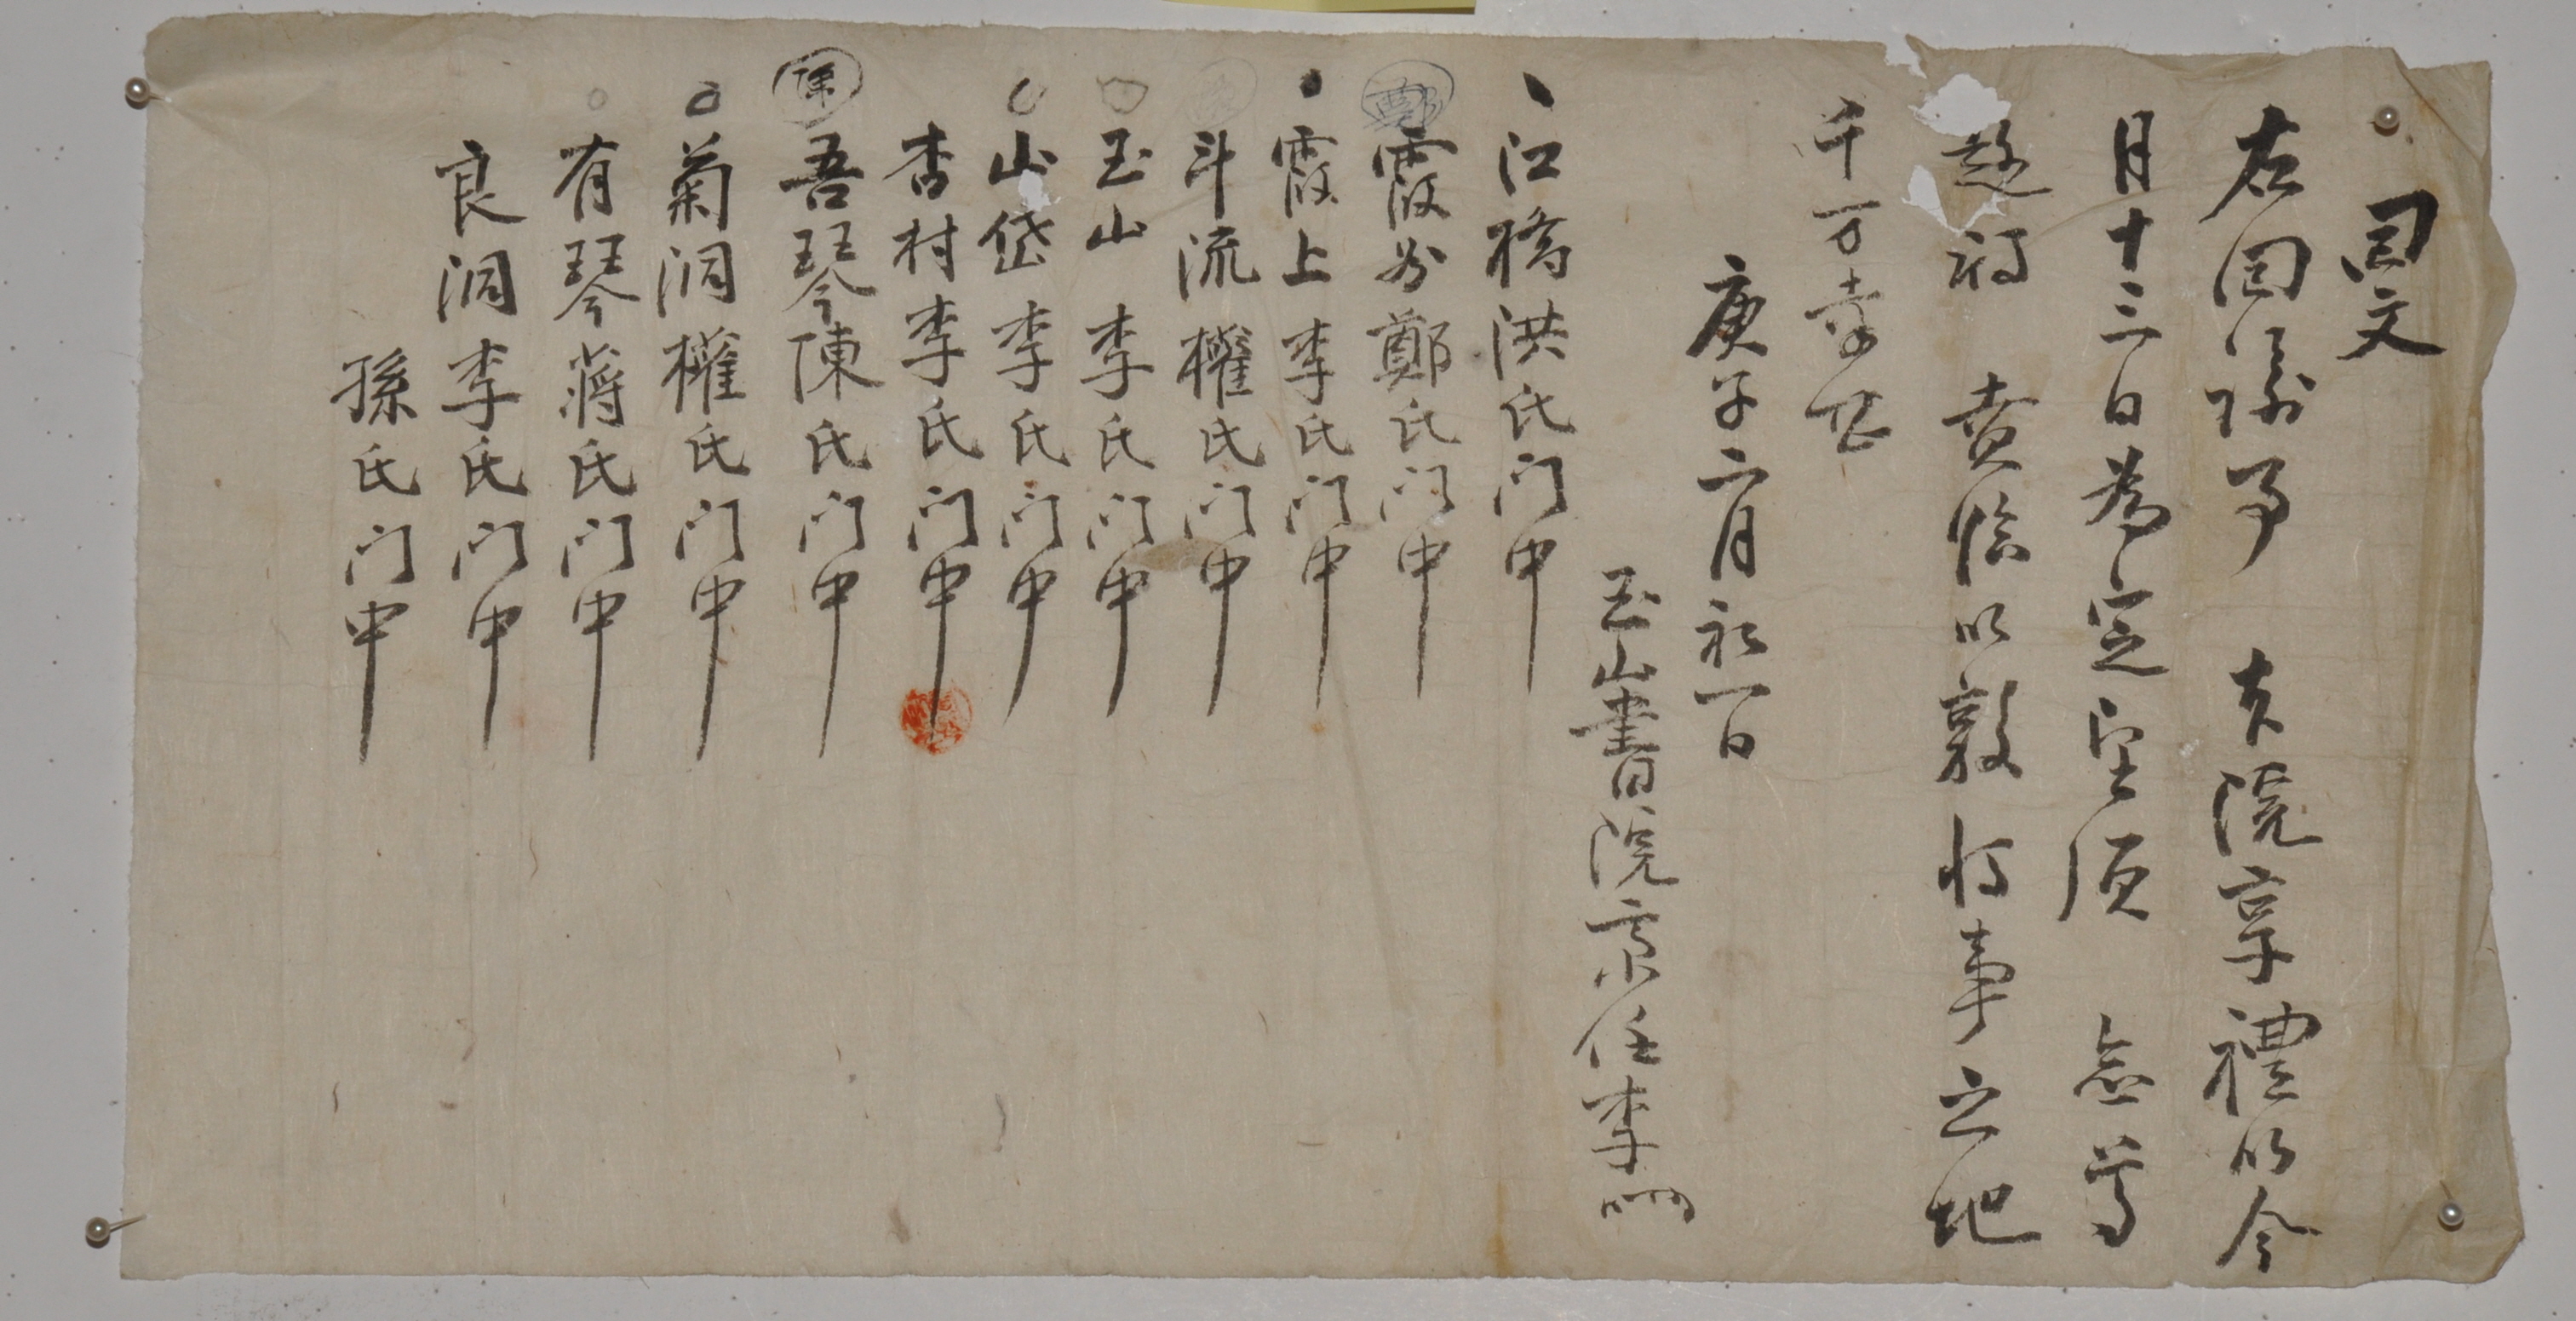 回文
右回諭事 夫院享禮以今
月十三日為定玆望須 念尊
趁初 賁臨以敦將事之地
千万幸甚
庚子二月初一日
玉山書院齋任李
江橋洪氏门中
霞谷鄭氏门中
霞上李氏门中
斗流權氏门中
玉山李氏门中
山岱李氏门中
杏村李氏门中
吾琴陳氏门中
菊洞權氏门中
有琴蔣氏门中
良洞李氏门中
孫氏门中